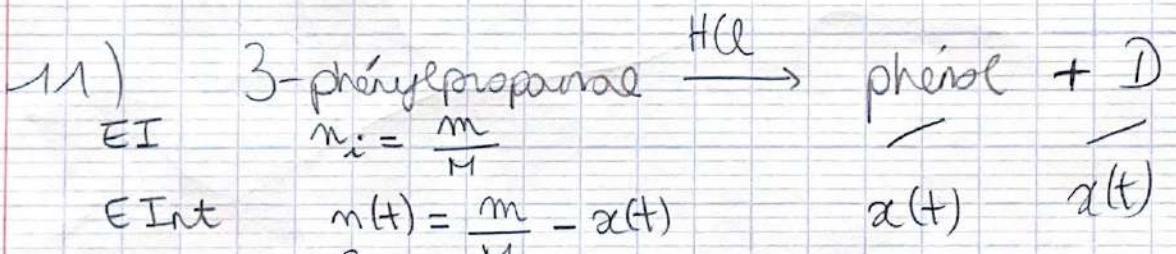 11) 3-phénylpropanal HCl → phénol + D
EI n_i = m/M / /
EInt n(t) = m/M - x(t) x(t) x(t)